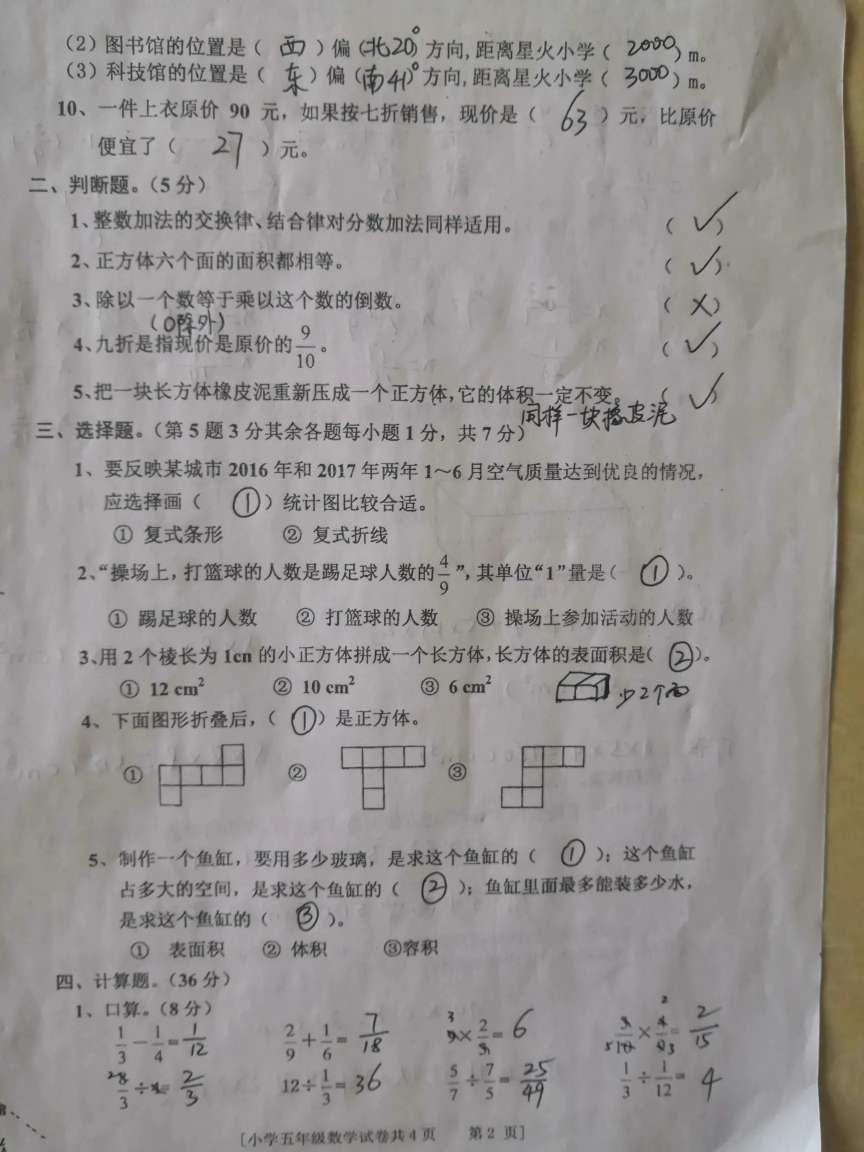 (2) 图书馆的位置是( 西 )偏(北20°)方向,距离星火小学( 2000 )m。
(3) 科技馆的位置是( 东 )偏(南41°)方向,距离星火小学( 3000 )m。
10、一件上衣原价 90 元，如果按七折销售，现价是( 63 )元，比原价
便宜了( 27 )元。
二、判断题。(5分)
1、整数加法的交换律、结合律对分数加法同样适用。 ( ✓ )
2、正方体六个面的面积都相等。 ( ✓ )
3、除以一个数等于乘以这个数的倒数。 ( X )
(0除外)
4、九折是指现价是原价的9/10。 ( ✓ )
5、把一块长方体橡皮泥重新压成一个正方体,它的体积一定不变。 ( ✓ )
同样一块橡皮泥
三、选择题。(第5题3分其余各题每小题1分，共7分)
1、要反映某城市2016年和2017年两年1～6月空气质量达到优良的情况，
应选择画( ① )统计图比较合适。
① 复式条形 ② 复式折线
2、“操场上，打篮球的人数是踢足球人数的4/9”,其单位“1”量是( ① )。
① 踢足球的人数 ② 打篮球的人数 ③ 操场上参加活动的人数
3、用2个棱长为1cn的小正方体拼成一个长方体,长方体的表面积是( ② )。
① 12 cm² ② 10 cm² ③ 6 cm² 少2个面
4、下面图形折叠后，( ① )是正方体。
① ② ③
5、制作一个鱼缸，要用多少玻璃，是求这个鱼缸的( ① )；这个鱼缸
占多大的空间，是求这个鱼缸的( ② )；鱼缸里面最多能装多少水，
是求这个鱼缸的( ③ )。
① 表面积 ② 体积 ③容积
四、计算题。(36分)
1、口算。(8分)
1/3-1/4=1/12 2/9+1/6=7/18 ×2/=6 ×=2/15
/3÷=2/3 12÷1/3=36 5/7÷7/5=25/49 1/3÷1/12=4
[小学五年级数学试卷共4页 第2页]